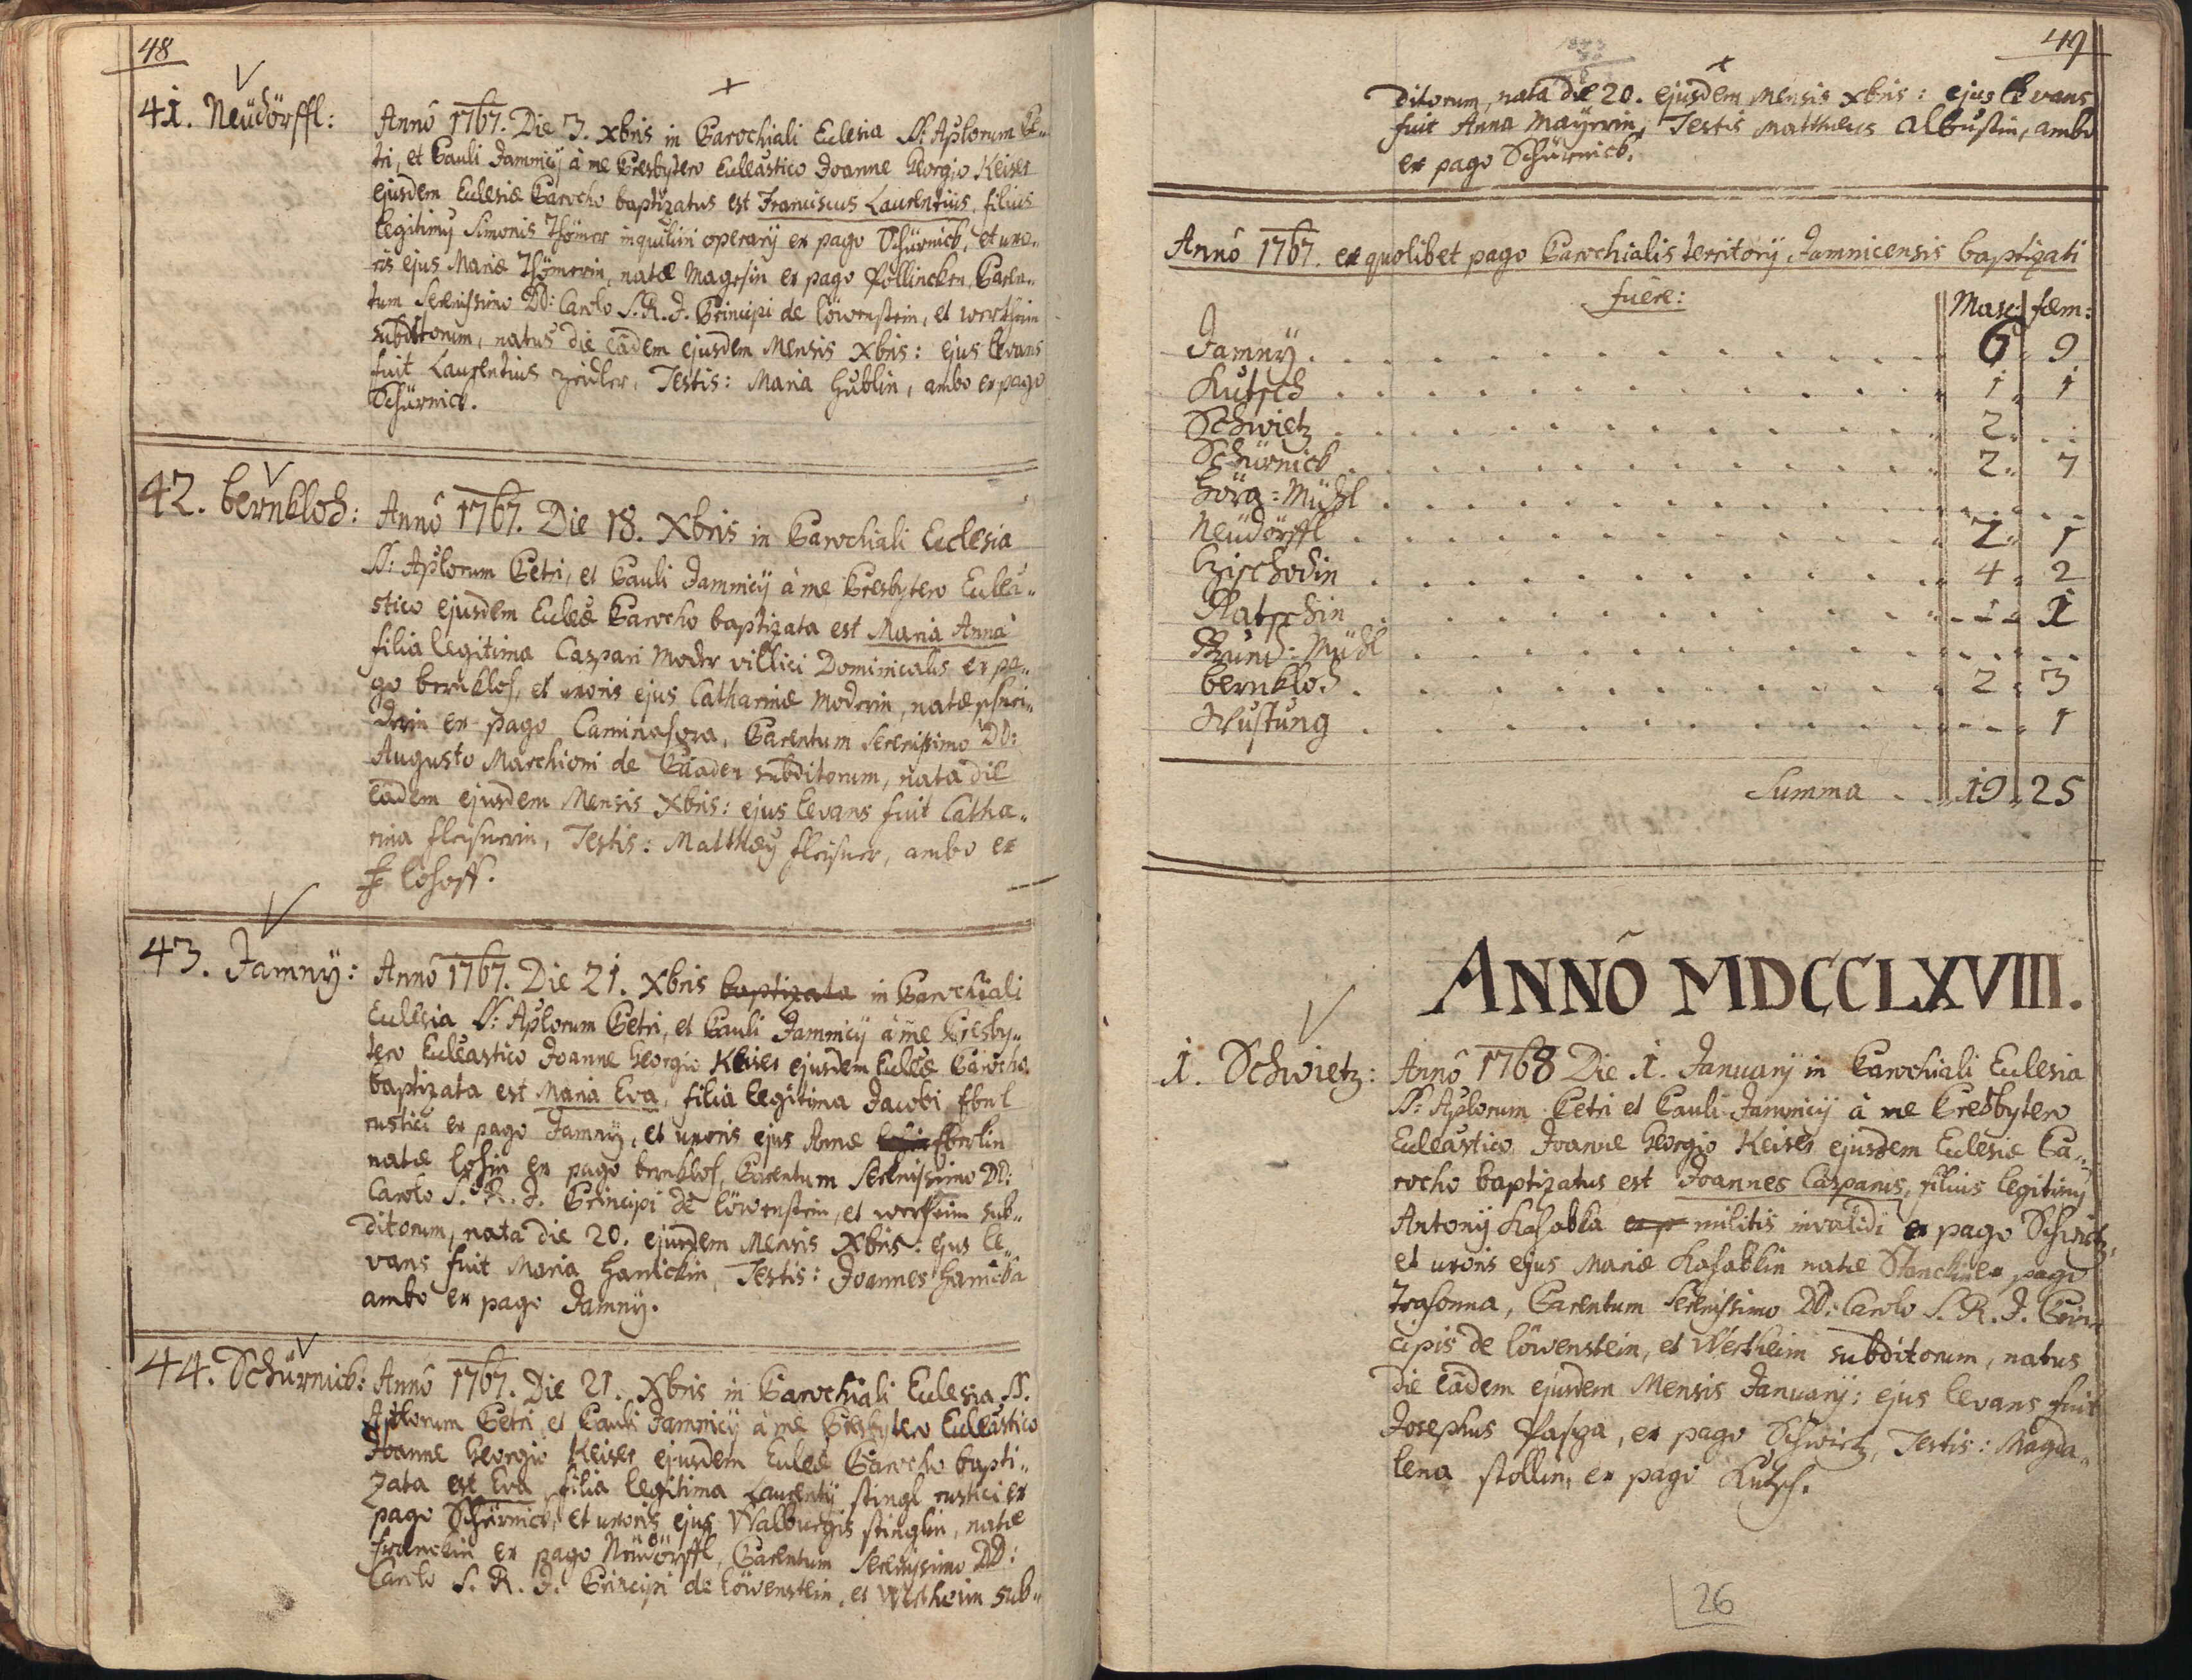 48
41. Neüdörffl:
Annô 1767. Die 3. Xbris in Parochiali Eclesia SS: Aplorum Pe-
tri, et Pauli Jamnicÿ à me Presbÿtero Eccleastico Joanne Georgio Keiser
ejusdem Eclesiæ Parocho baptizatus est Franciscus Laurentius, filius
legitimÿ Simonis Thömer inquilini operarÿ ex pago Schürnick, et uxo-
ris ejus Mariæ Thömerin, natæ ex pago Pollincken, Paren-
tum Serenissimo DD: Carolo S. R. J. Principi de löwenstein, et wertheim
subditorum, natus die eâdem ejusdem Mensis Xbris: ejus levans
fuit Laurentius Zeidler, Testis: Maria Hüblin, ambo ex pago
Schürnick.
42. bernkloh:
Annô 1767. Die 18. Xbris in Parochiali Eclesia
SS: Aplorum Petri, et Pauli Jamnicÿ à me Presbytero Eclea-
stico ejusdem Ecleæ Parocho baptizata est Maria Anna
filia legitima Caspari Moder villici Dominicalis ex pa-
go bernkloh, et uxoris ejus Catharinæ Moderin, natæ schnei-
derin ex pago Caminahora, Parentum Serenissimo DD:
Augusto Marchioni de Baaden subditorum, nata die
eâdem ejusdem Mensis Xbris: ejus levans fuit Catha-
rina fleisnerin, Testis: Matthæÿ fleisner, ambo ex
lohoff.
43. Jamnÿ:
Annô 1767. Die 21. Xbris baptizata in Parochiali
Eclesia SS: Aplorum Petri, et Pauli Jamnicÿ à me Presbÿ-
tero Eccleastico Joanne Georgio Keiser ejusdem Ecleæ Parocho
baptizata est Maria Eva, filia legitima Jacobi Eberl
rustici ex pago Jamnÿ, et uxoris ejus Annæ Eberlin
natæ lohin ex pago bernkloh, Parentum Serenissimo DD:
Carolo S. R. J. Principi de löwenstein, et wertheim sub-
ditorum, nata die 20. ejusdem Mensis Xbris: ejus le-
vans fuit Maria Hanickin, Testis: Joannes Hanicka
ambo ex pago Jamnÿ.
44. Schürnick:
Annô 1767. Die 21. Xbris in Parochiali Eclesia SS.
Aplorum Petri, et Pauli Jamnicÿ à me Presbytero Ecleastico
Joanne Georgio Keiser ejusdem Ecleæ Parocho bapti-
zata est Eva, filia legitima Laurentÿ stingl rustici ex
pago Schürnick, et uxoris ejus Walburgis stinglin, natæ
franckin ex pago Neüdörffl, Parentum Serenissimo DD:
Carolo S. R. J. Principi de löwenstein, et Wertheim sub-
49
ditorum, nata die 20. ejusdem Mensis Xbris: ejus levans
fuit Anna Mayrin, Testis Matthæus Albustin, ambo
ex pago Schürnick.
Annô 1767. ex quolibet pago Parochialis territorÿ Jamnicensis baptizati
fuêre:
Masc: fæm:
Jamnÿ . . . 6 9
Kutsch . . . 1 1
Schwietz . . . 2 . .
Schürnick . . . 2 7
Hörg=Mühl . . .
Neüdörffl . . . 2 1
Czischodin . . . 4 2
Ratschin . . . - 1
Gründ=Mühl . . .
bernkloh . . . 2 3
Wustung . . . - 1
Summa . . 19 25
ANNÔ MDCCLXVIII.
1. Schwietz:
Annô 1768 Die 1. Januarÿ in Parochiali Eclesia
SS: Aplorum Petri et Pauli Jamnicÿ à me Presbytero
Ecleastico Joanne Georgio Keiser ejusdem Eclesiæ Pa-
rocho baptizatus est Joannes Casparus, filius legitimÿ
Antonÿ Kahabka ex p militis invalidi ex pago Schwietz,
et uxoris ejus Mariæ Kahabkin natæ ex pago
Trahonna, Parentum Serenissimo DD: Carolo S. R. J. Prin-
cipis de löwenstein, et Wertheim subditorum, natus
die eâdem ejusdem Mensis Januarÿ: ejus levans fuit
Josephus Paska, ex pago Schwietz, Testis: Magda-
lena stollin, ex pago Kutsch.
26